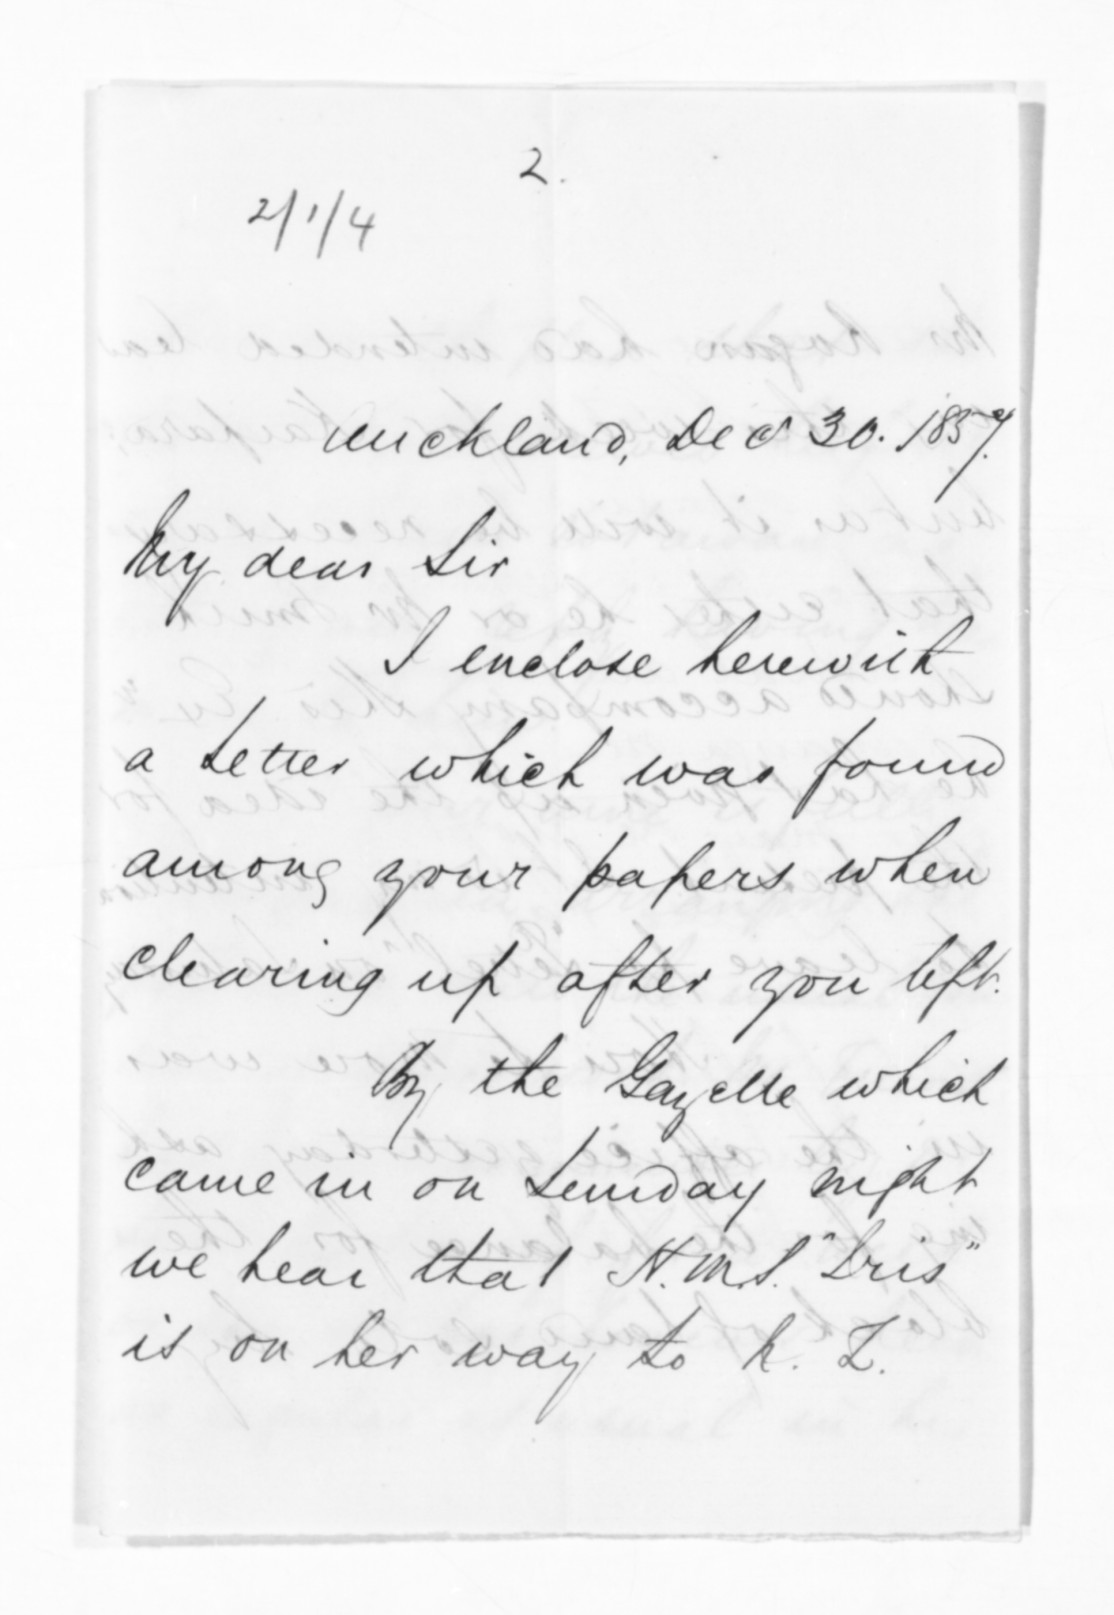 2.
2/1/4
Auckland, Dec 30. 1857.
My dear Sir
I enclose herewith
a letter which was found
among your papers when
clearing up after you left.
By the Gazelle which
came in on Sunday night
we hear that H.M.S. "Iris"
is on her way to N. Z.